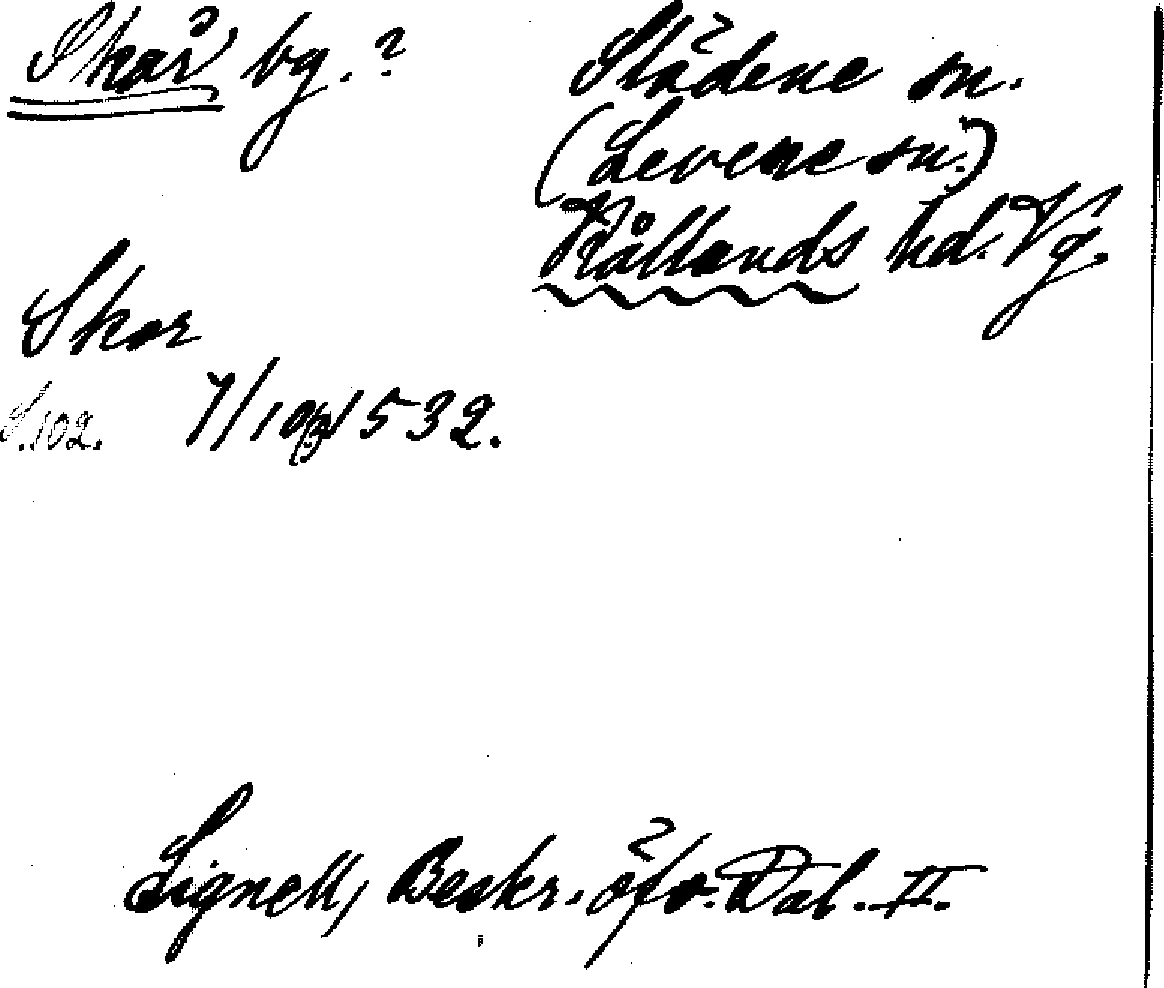 Skår bg.?
Slädene sn.
(Levene sn.)
Kållands hd. Vg.
Skor
S.102. 7/10 1532.
Lignell, Beskr. öfv. Dal. II.